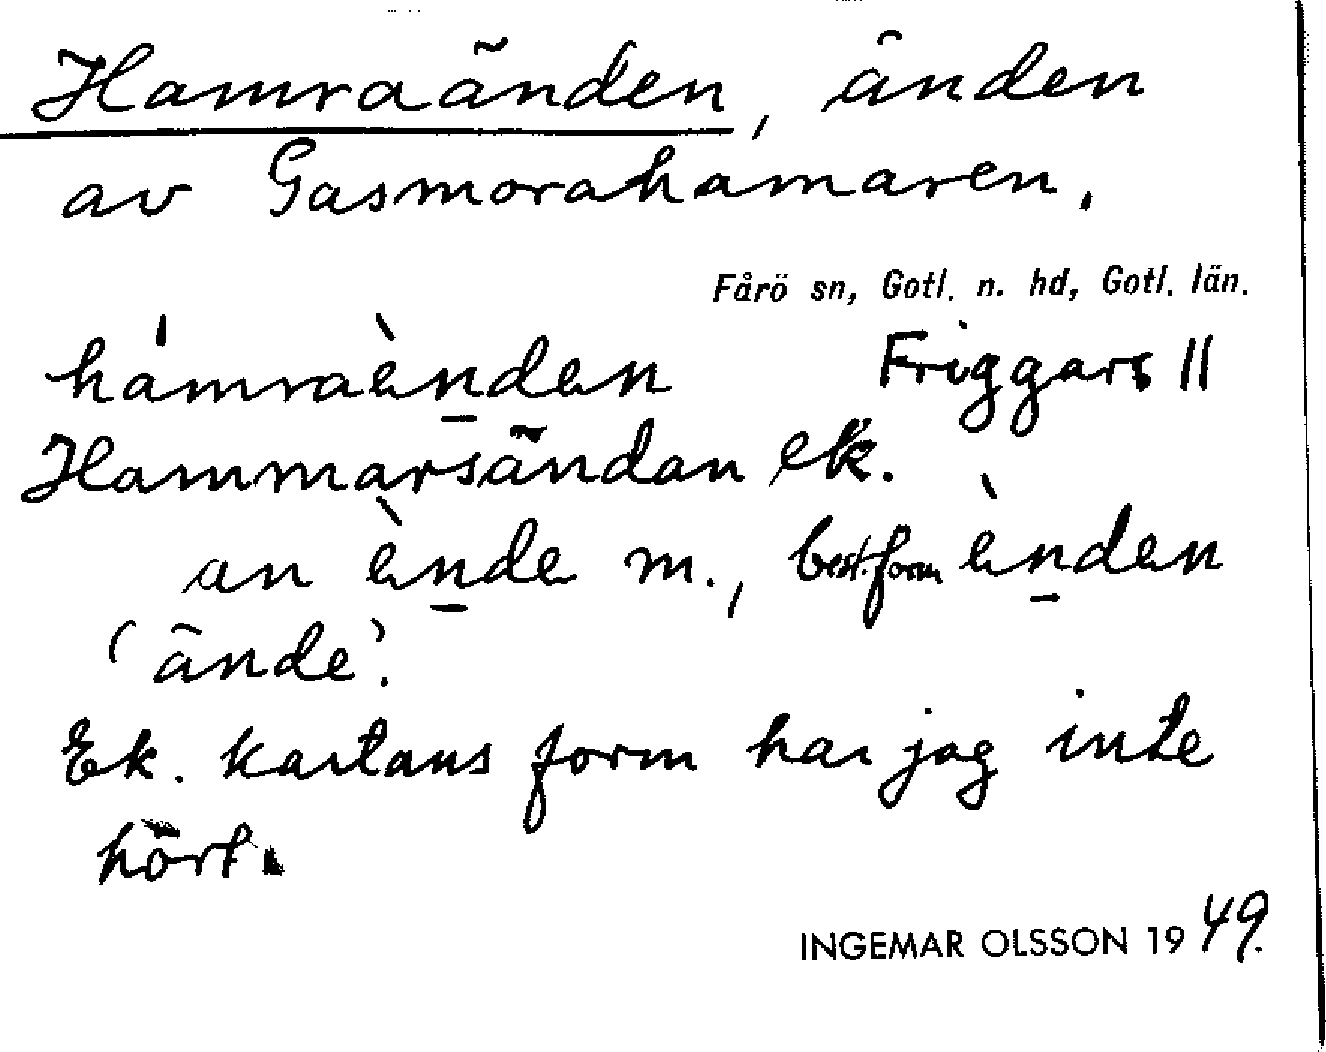 Hamraänden, änden
av Gasmorahamaren.
Fårö sn, Gotl. n. hd, Gotl. län.
hámraènden Friggars II
Hammarsändan ek.
an ènde m., best. form ènden
'ände'.
Ek. kartans form har jag inte
hört.
INGEMAR OLSSON 1949.